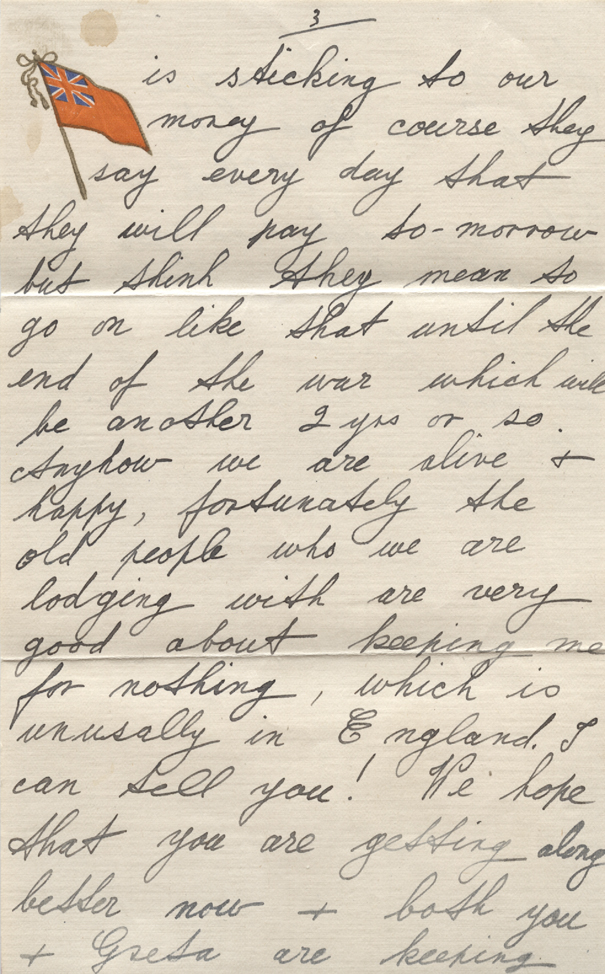 3
is sticking to our
money of course they
say every day that
they will pay to-morrow
but think they mean to
go on like that until the
end of the war which will
be another 2 yrs or so.
Anyhow we are alive +
happy, fortunately the
old people who we are
lodging with are very
good about keeping me
for nothing, which is
unusally in England. I
can tell you! We hope
that you are getting along
better now + both you
+ Greta are keeping